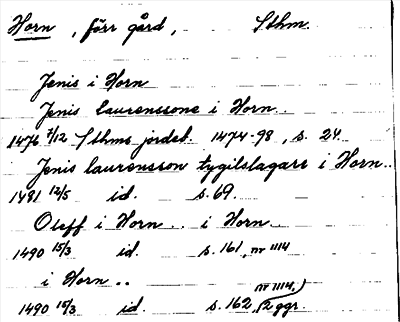 Horn, förr gård, Sthm.
Jenis i Horn
Jenis laurenssone i Horn..
1476 7/12 Sthms jordeb. 1474-98, s. 24
Jenis laurensson tygilslagare i Horn..
1481 12/5 id. s. 69.
Oleff i Horn.. i Horn
1490 15/3 id. s. 161, nr 1114
i Horn..
nr 1114,)
1490 15/3 id. s. 162, (2 ggr.